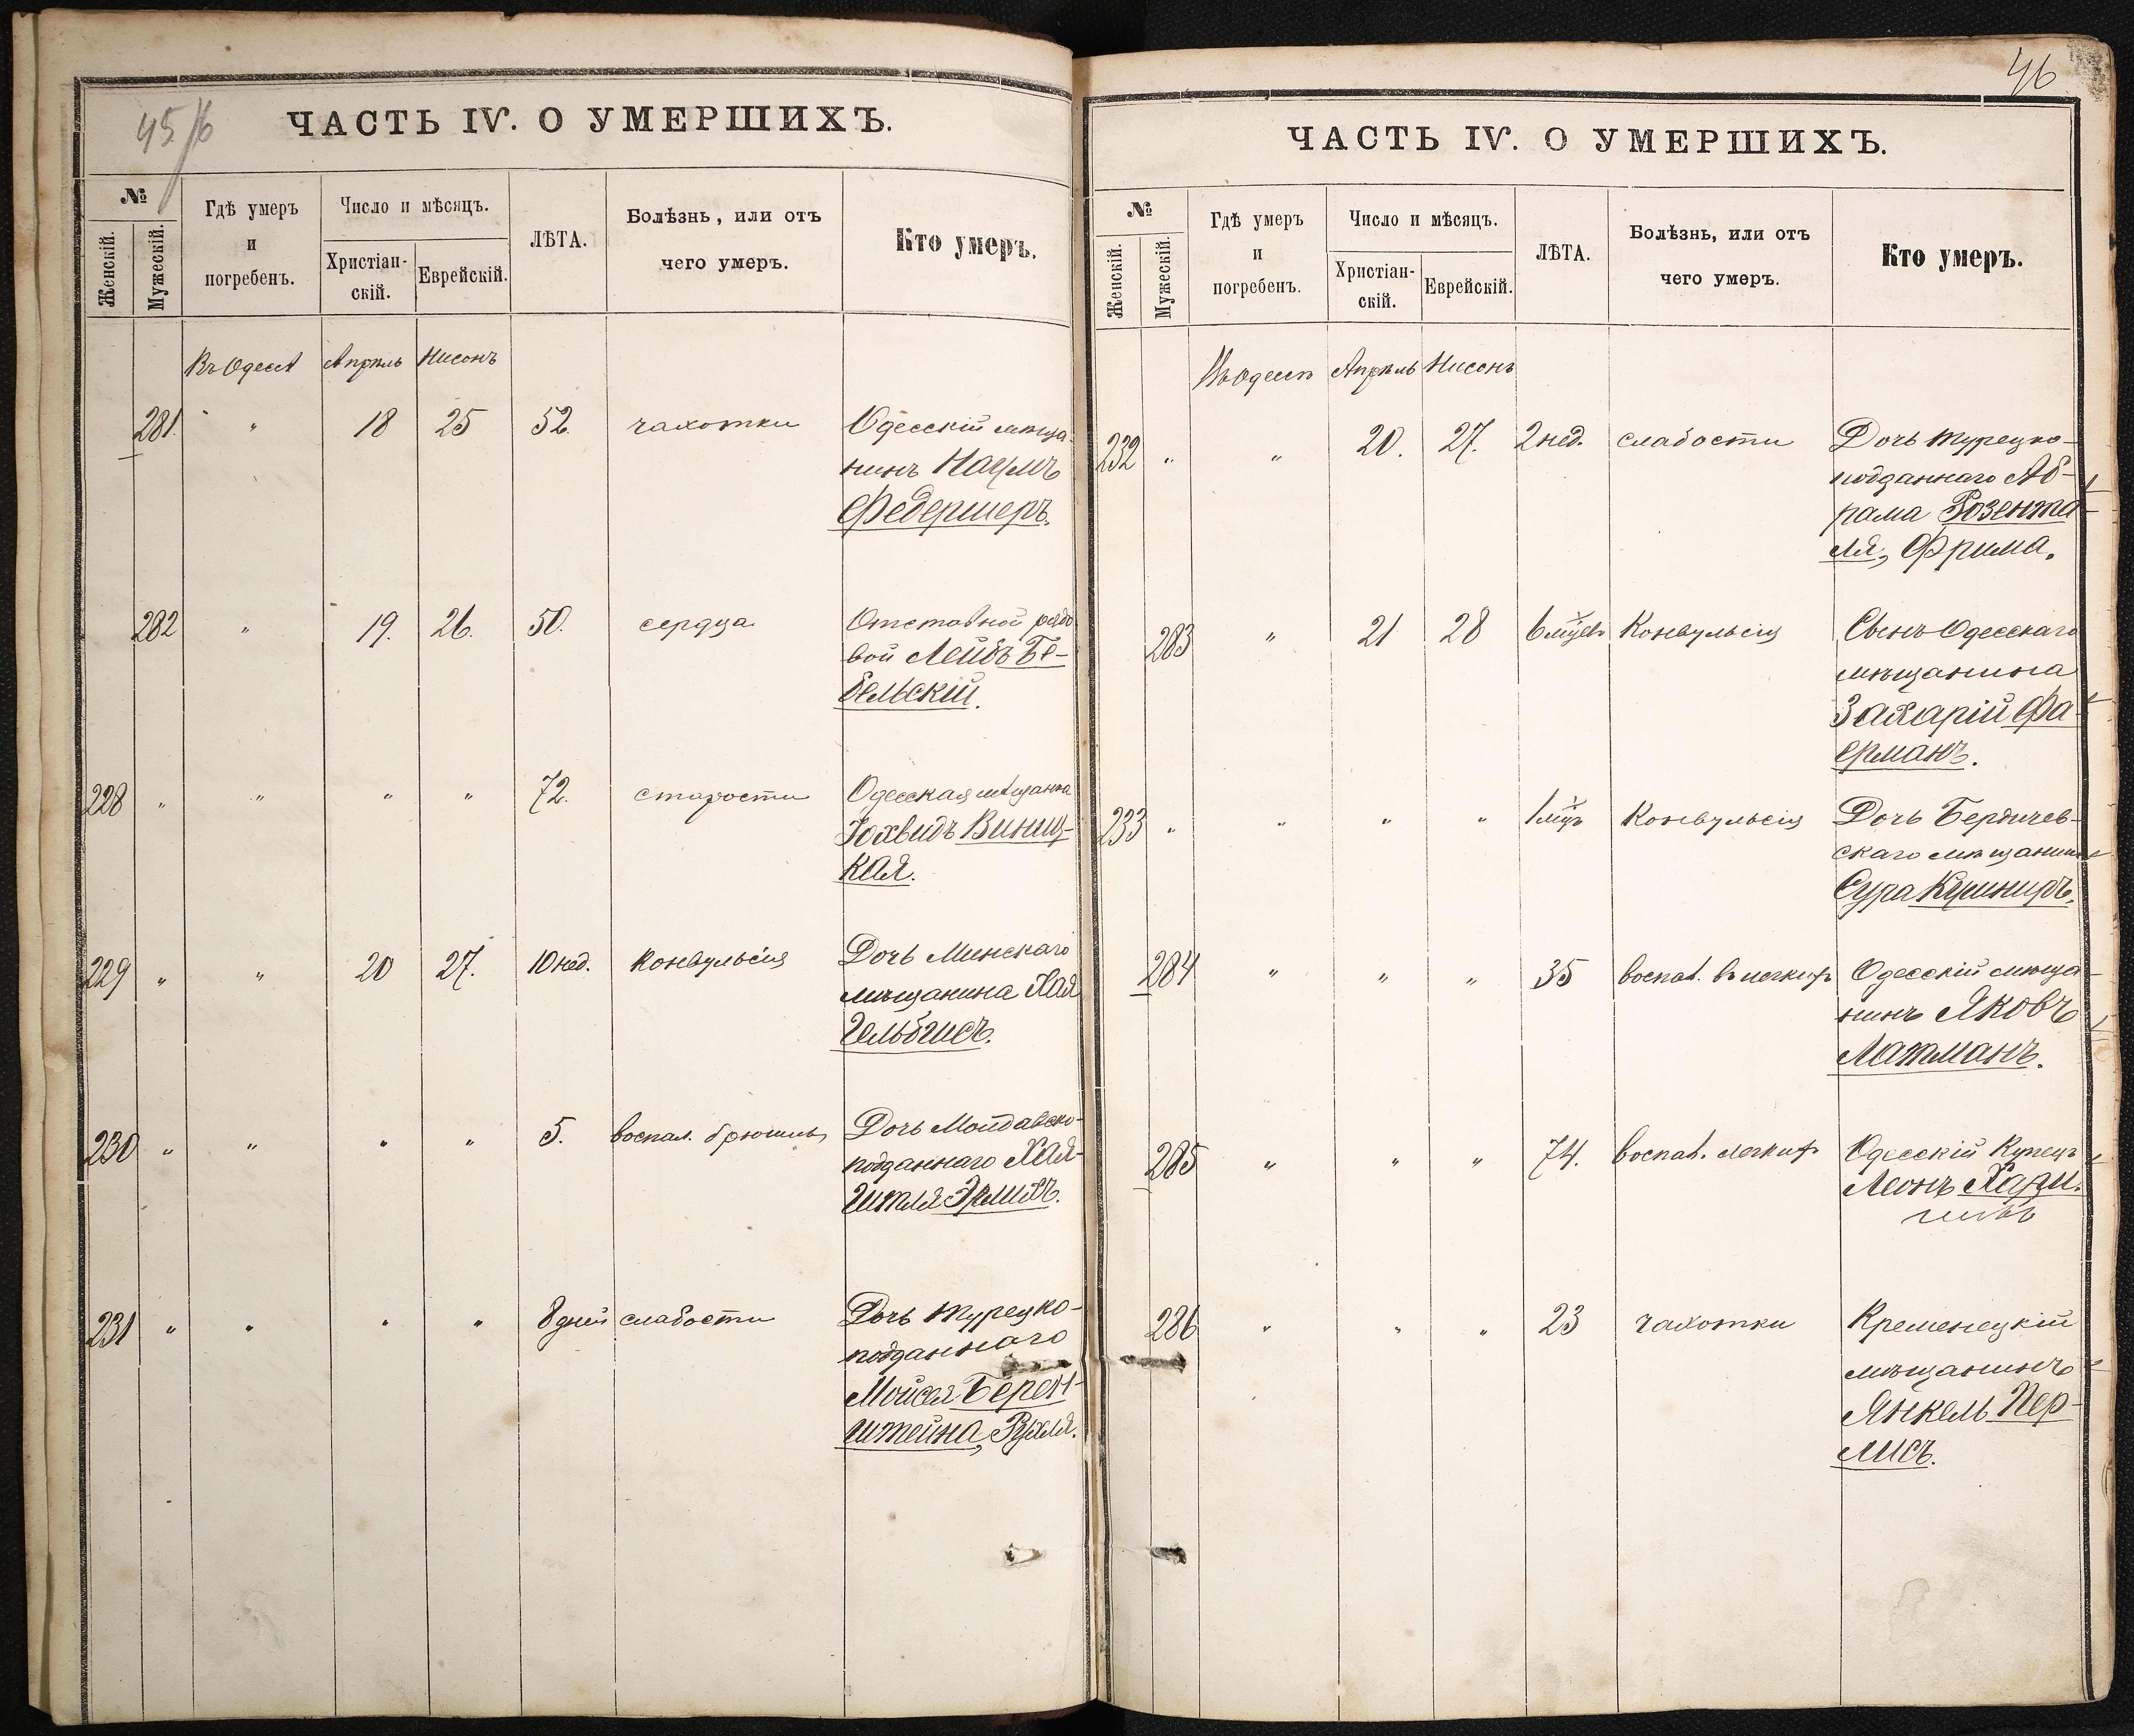 45/6
ЧАСТЬ IV. О УМЕРШИХЪ.
№
Женскій.
Мужескій.
Гдѣ умеръ
и
погребенъ.
Число и мѣсяцъ.
Христіан-
скій.
Еврейскій.
ЛѢТА.
Болѣзнь, или отъ
чего умеръ.
Кто умеръ.
Въ Одессѣ Апрѣль Нисонъ
281. " 18 25 52. чахотки Одесскій мѣща-
нинъ Наумъ
Федершеръ.
282 " 19. 26. 50. сердца Отставной рядо
вой Лейбъ Бе-
бельскій.
228 " " " " 72. старости Одесская мѣщанка
Іохвидъ Виниц-
кая.
229 " " 20 27. 10 нед. конвульсія Дочь Минскаго
мѣщанина Хая
Гельбгисъ.
230 " " " " 5. воспал. брюшины Дочь Молдавско-
подданнаго Хая-
Гитля
231 " " " " 8 дней слабости Дочь турецко-
подданнаго
Мойсея Берен-
штейна, Рухля.
46
ЧАСТЬ IV. О УМЕРШИХЪ.
№
Женскій.
Мужескій.
Гдѣ умеръ
и
погребенъ.
Число и мѣсяцъ.
Христіан-
скій.
Еврейскій.
ЛѢТА.
Болѣзнь, или отъ
чего умеръ.
Кто умеръ.
Въ Одессѣ Апрѣль Нисонъ
232 " " 20. 27. 2 нед. слабости Дочь турецко-
подданнаго Аб-
рама Розента
ля, Фрима.
283 " 21 28 6 мѣсяц. Конвульсія Сынъ Одесскаго
мѣщанина
Захарій Фа-
ерманъ.
233 " " " " 1 мѣсц. Конвульсія Дочь Бердичев-
скаго мѣщанина
Сура Кушниръ.
284 " " " 35 воспал. въ легкихъ Одесскій мѣща-
нинъ Яковъ
Латманъ.
285 " " " 74. воспал. легкихъ Одесскій Купецъ
Леонъ
286 " " " 23 чахотки Кременецкій
мѣщанинъ
Янкель Пер-
лисъ.